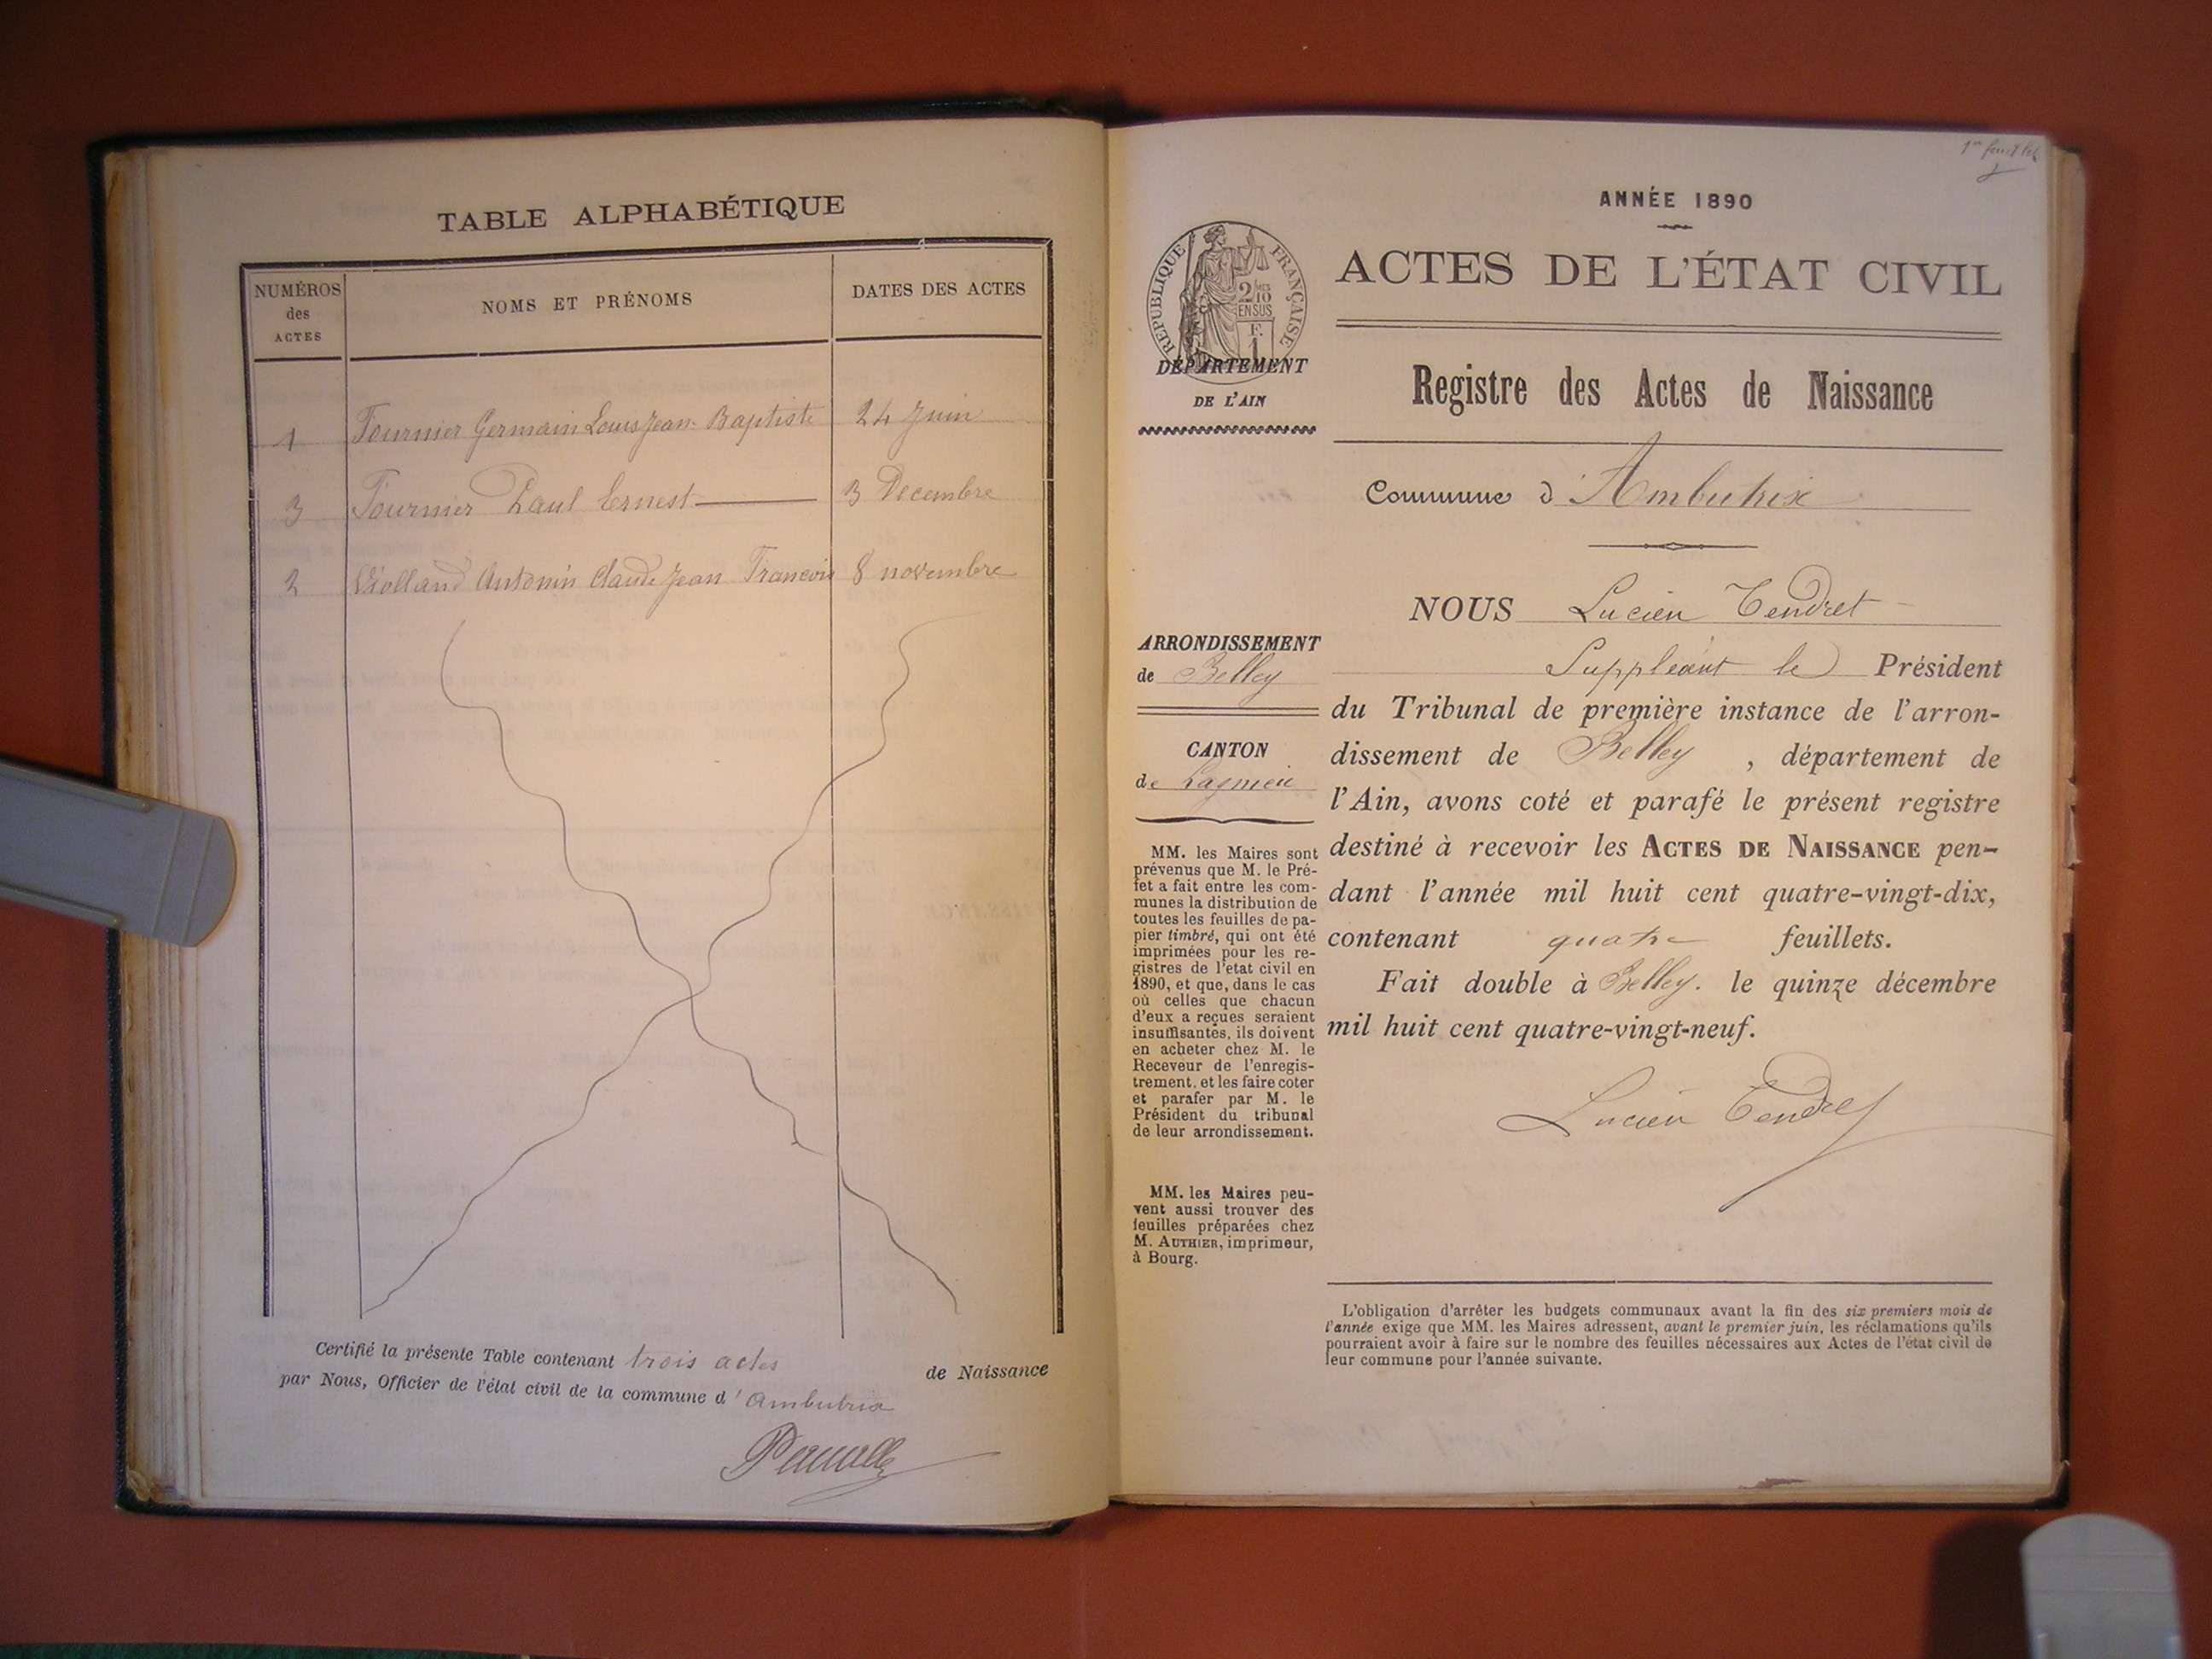 TABLE ALPHABÉTIQUE
NUMÉROS
des
ACTES
NOMS ET PRÉNOMS
DATES DES ACTES
1 Fournier Germain Louis Jean-Baptiste 24 Juin
3 Fournier Paul Ernest 3 Decembre
2 Violland Antonin Claude Jean Francois 8 novembre
Certifié la présente Table contenant trois actes de Naissance
par Nous, Officier de l'état civil de la commune d'Ambutrix
1er feuillet
ANNÉE 1890
ACTES DE L'ÉTAT CIVIL
RÉPUBLIQUE FRANÇAISE
2/10
EN SUS
F.
1
DÉPARTEMENT
DE L'AIN
Registre des Actes de Naissance
Commune d'Ambutrix
ARRONDISSEMENT
de Belley
CANTON
de Lagnieu
MM. les Maires sont
prévenus que M. le Pré-
fet a fait entre les com-
munes la distribution de
toutes les feuilles de pa-
pier timbré, qui ont été
imprimées pour les re-
gistres de l'etat civil en
1890, et que, dans le cas
où celles que chacun
d'eux a reçues seraient
insuffisantes, ils doivent
en acheter chez M. le
Receveur de l'enregis-
trement, et les faire coter
et parafer par M. le
Président du tribunal
de leur arrondissement.
MM. les Maires peu-
vent aussi trouver des
feuilles préparées chez
M. AUTHIER, imprimeur,
à Bourg.
NOUS Lucien Tendret
Suppléant le Président
du Tribunal de première instance de l'arron-
dissement de Belley, département de
l'Ain, avons coté et parafé le présent registre
destiné à recevoir les ACTES DE NAISSANCE pen-
dant l'année mil huit cent quatre-vingt-dix,
contenant quatre feuillets.
Fait double à Belley. le quinze décembre
mil huit cent quatre-vingt-neuf.
Lucien Tendret
L'obligation d'arrêter les budgets communaux avant la fin des six premiers mois de
l'année exige que MM. les Maires adressent, avant le premier juin, les réclamations qu'ils
pourraient avoir à faire sur le nombre des feuilles nécessaires aux Actes de l'état civil de
leur commune pour l'année suivante.